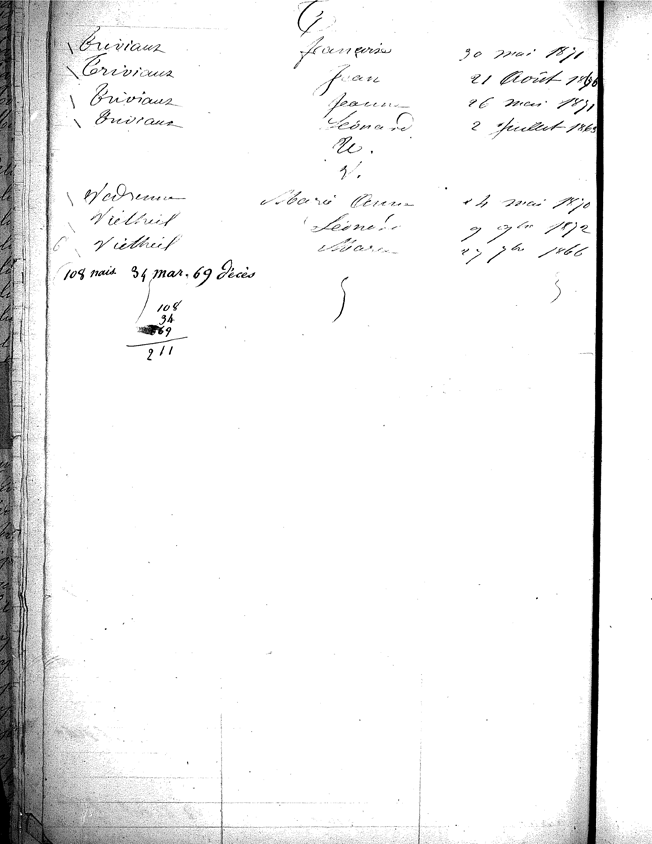 T
Triviaux Françoise 30 mai 1871
Triviaux Jean 21 Août
Triviaux Jeanne 26 mai 1871
Triviaux Léonard 2 Juillet 1863
U.
V.
Vedrenne Marie Anne 24 mai 1870
Vielheil 9 9bre 1872
Vielheil Marie 27 1866
108 nais 34 mar. 69 décès
108
34
69
211